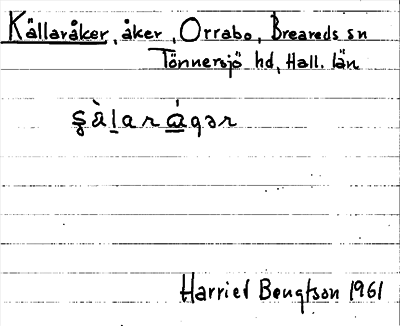 Källaråker, åker, Orrabo, Breareds sn
Tönnersjö hd, Hall. län
Harriet Bengtson 1961